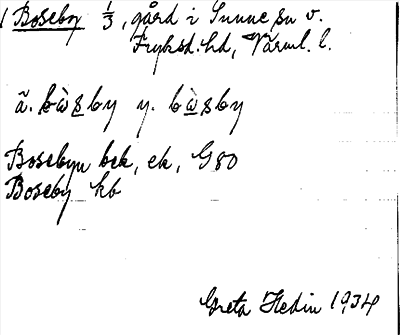 Boseby 1/3, gård i Sunne sn v.
Fryksd. hd, Värml. l.
ä. bɷ̀sby y. bɷ̀sby
Bosebyn bek, ek, G80
Boseby kb
Greta Hedin 1934